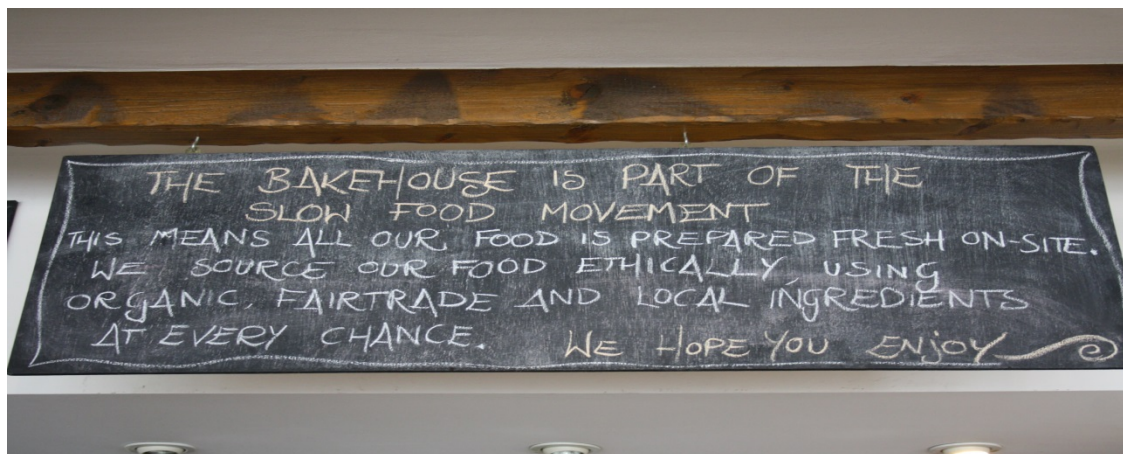 THE BAKEHOUSE IS PART OF THE
SLOW FOOD MOVEMENT
THIS MEANS ALL OUR FOOD IS PREPARED FRESH ON-SITE.
WE SOURCE OUR FOOD ETHICALLY USING
ORGANIC, FAIRTRADE AND LOCAL INGREDIENTS
AT EVERY CHANCE. WE HOPE YOU ENJOY